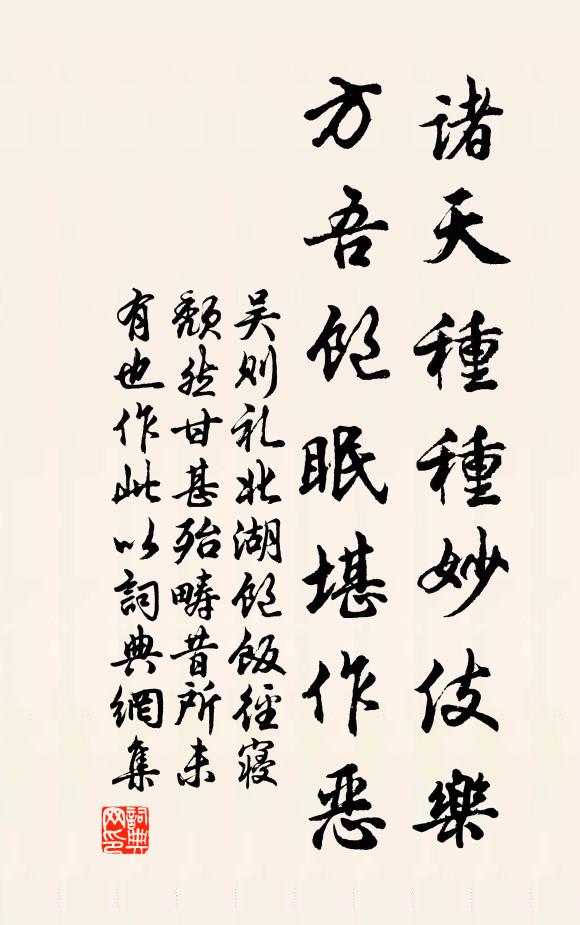 諸天種種妙伎樂
方吾飽眠堪作惡
吴則礼北湖飽飯徑寢
頹然甘甚殆疇昔所未
有也作此以詞典網集
詞典网印